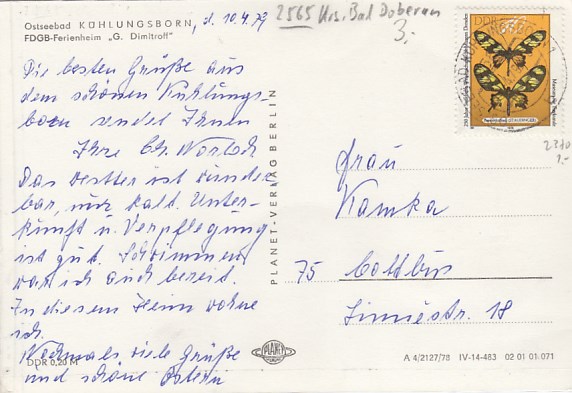 Ostseebad KÜHLUNGSBORN, d. 10.4.79
FDGB-Ferienheim „G. Dimitroff"
2565 Krs. Bad Doberan
3,-
DDR
2370
1,-
Die besten Grüße aus
dem schönen Kühlungs-
born sendet Ihnen
Ihre Ch.
Das Wetter ist wunder
bar, nur kalt. Unter-
kunft u. Verpflegung
ist gut. Schwimmen
war ich auch bereit.
In diesem Heim wohne
ich.
Nochmals viele Grüße
und schöne Ostern
DDR 0,20 M
PLANET-VERLAG BERLIN
Frau
Kamka
75 Cottbus
18
PLANET
A 4/2127/78 IV-14-483 02 01 01 071